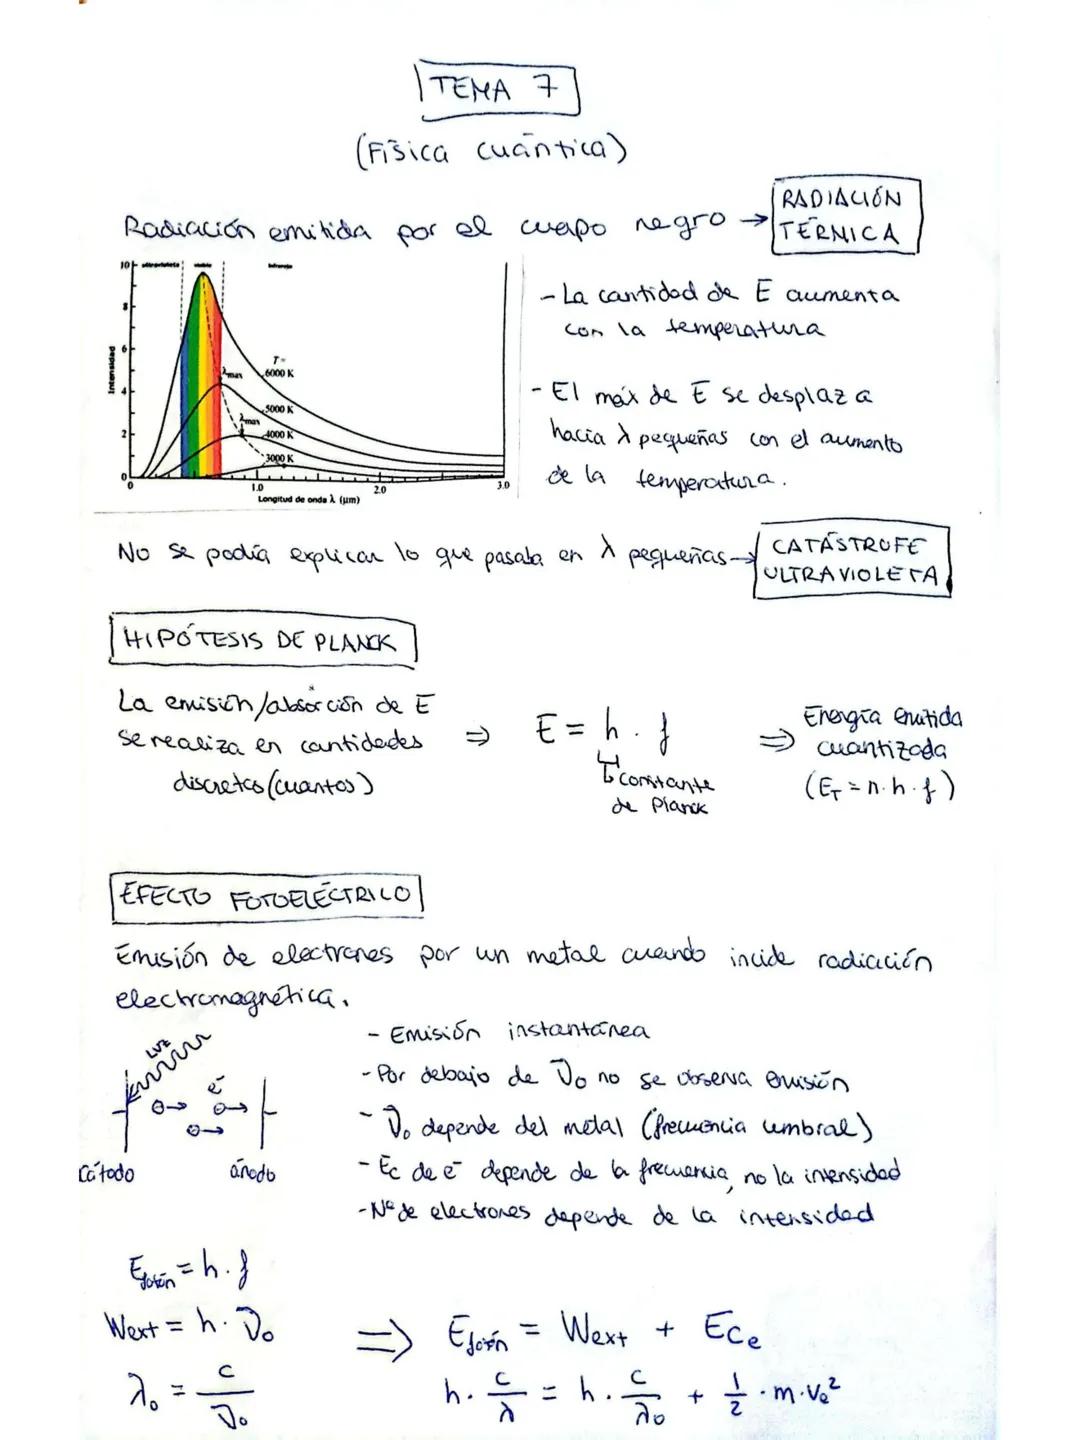 TEMA 7
(Física cuántica)
Radiación emitida por el cuerpo negro → RADIACIÓN TÉRMICA
10 ultravioleta visible infrarrojo
8
6
4
2
0
Intensidad
T=
6000 K
λmax
5000 K
λmax
4000 K
3000 K
0 1.0 2.0 3.0
Longitud de onda λ (μm)
- La cantidad de E aumenta
con la temperatura
- El máx de E se desplaza
hacia λ pequeñas con el aumento
de la temperatura.
No se podía explicar lo que pasaba en λ pequeñas → CATÁSTROFE ULTRAVIOLETA
HIPÓTESIS DE PLANCK
La emisión/absorción de E
se realiza en cantidades
discretas (cuantos)
⇒ E = h · f
constante
de Planck
⇒ Energía emitida
cuantizada
(E_T = n · h · f)
EFECTO FOTOELÉCTRICO
Emisión de electrones por un metal cuando incide radiación
electromagnética.
LUZ
e⁻
Cátodo ánodo
- Emisión instantánea
- Por debajo de ν₀ no se observa emisión
- ν₀ depende del metal (frecuencia umbral)
- Ec de e⁻ depende de la frecuencia, no la intensidad
- Nº de electrones depende de la intensidad
E_fotón = h · f
Wext = h · ν₀
λ₀ = c / ν₀
⇒ E_fotón = Wext + Ec_e
h · c/λ = h · c/λ₀ + 1/2 · m · v_e²